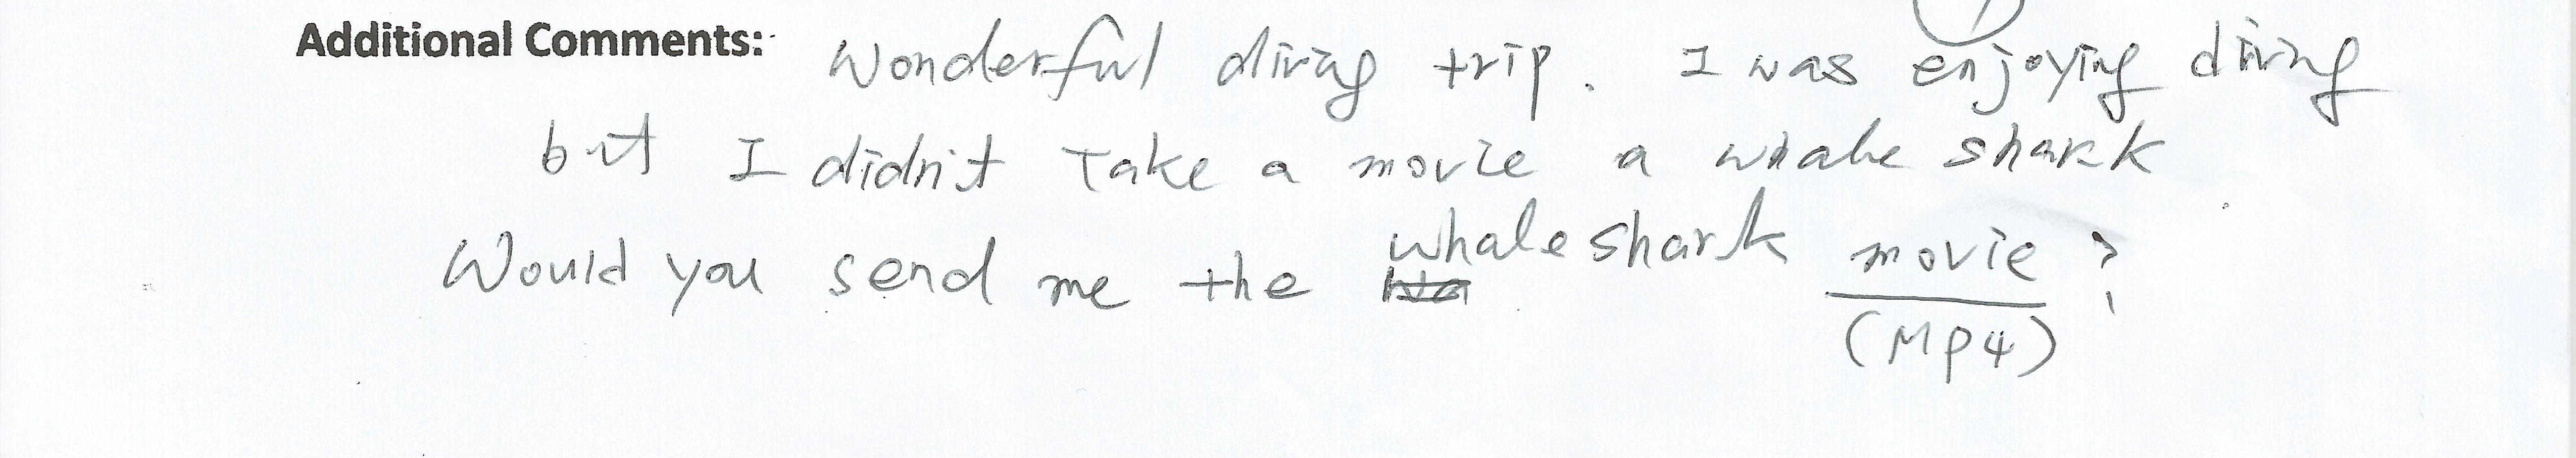 Additional Comments: Wonderful diving trip. I was enjoying diving
but I didn't take a movie a whale shark
Would you send me the whale shark movie?
(MP4)